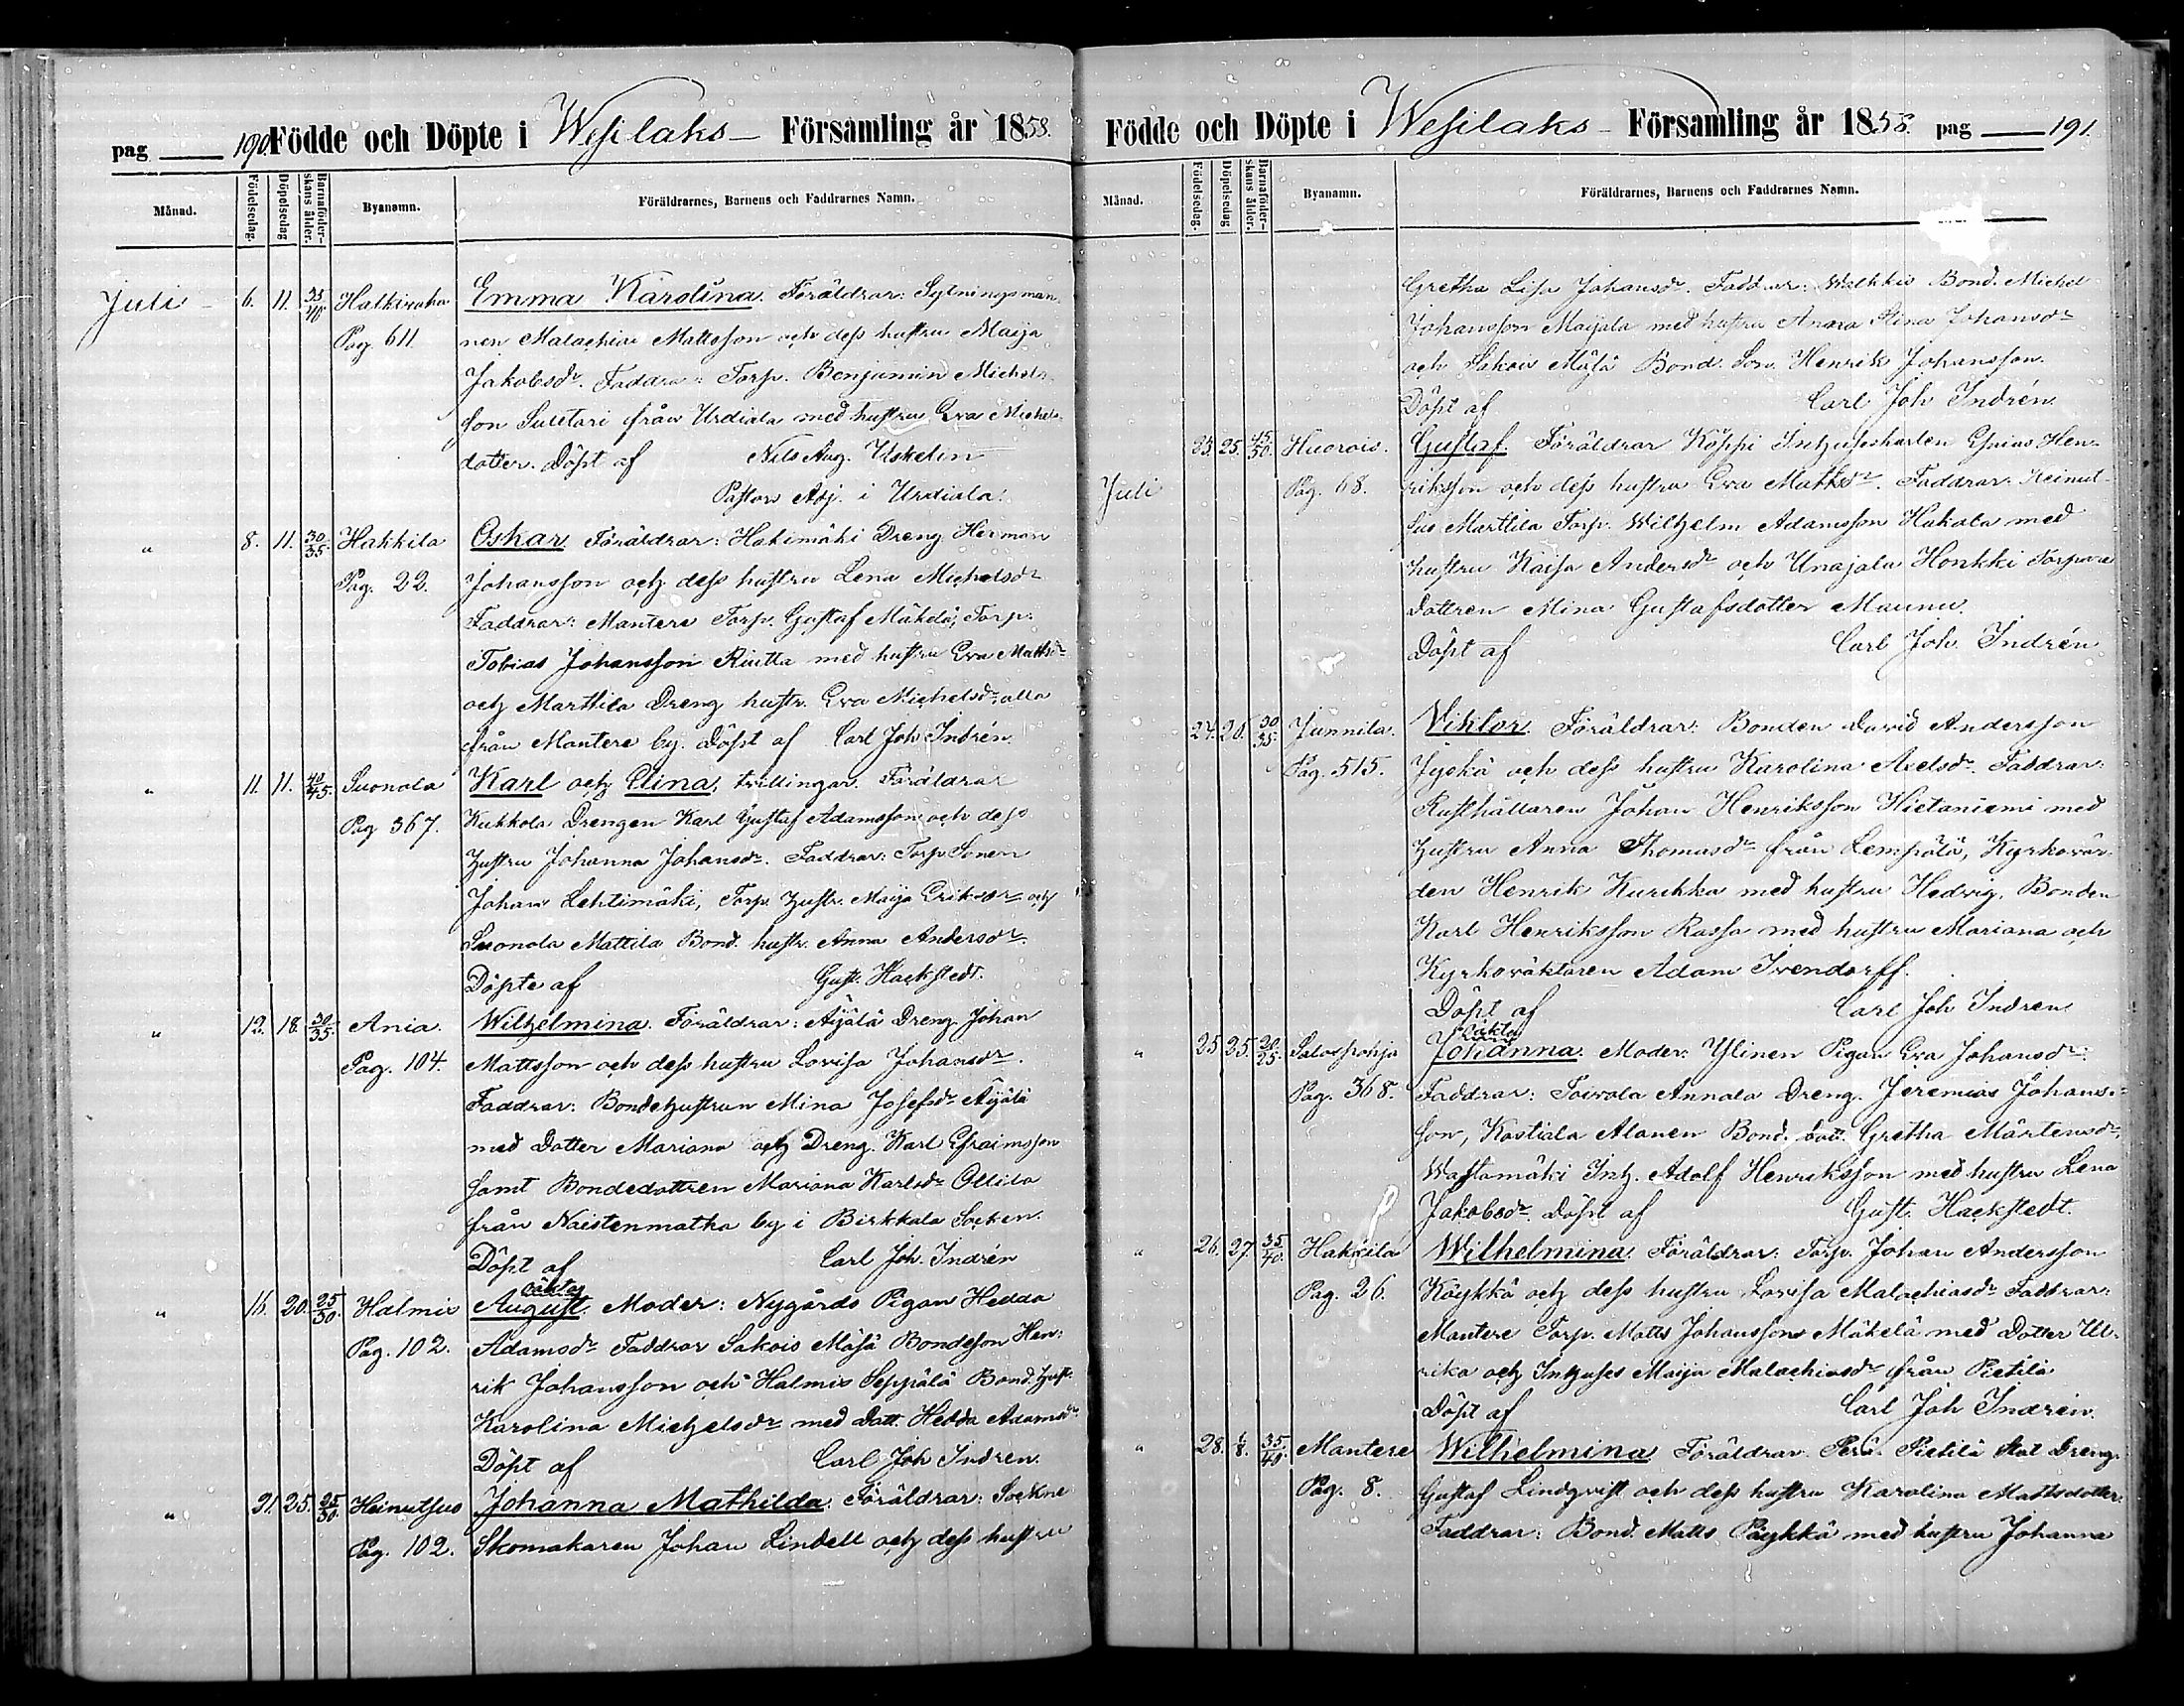 pag 190. Födde och Döpte i Wesilaks Församling år 1858.
Månad. Födelsedag. Döpelsedag Barnaföder-skans ålder. Byanamn. Föräldrarnes, Barnens och Faddrarnes Namn.
Juli 6. 11. 35/40 Halkivaha Emma Karolina. Föräldrar: Sytningsman-
Pag 611 nen Malachias Mattsson och dess hustru Maija
Jakobsdr. Faddrar: Torp. Benjamin Michels-
son Suletari från Urdiala med hustru Eva Michels-
dotter. Döpt af Nils Aug. Uskelin
Pastors Adj. i Urdiala.
" 8. 11. 30/35. Hakkila Oskar. Föräldrar: Hakimäki Dreng Herman
Pag. 22. Johansson och dess hustru Lena Michelsdr
Faddrar: Mantere Torp. Gustaf Mäkelä, Torp.
Tobias Johansson Riutta med hustru Eva Mattsdr
och Marttila Dreng hustr. Eva Michelsdr, alla
från Mantere by. Döpt af Carl Joh Indrén.
" 11. 11. 40/45. Suonola Karl och Elina, trillingar. Föräldrar
Pag 367. Kukkola Drengen Karl Gustaf Adamsson och dess
hustru Johanna Johansdr. Faddrar: Torp Sonen
Johan Lehtimäki, Torp. hustr. Maija Eriksdr och
Suonola Mattila Bond. hustr. Anna Andersdr.
Döpte af Gust. Hackstedt.
" 12. 18. 30/35. Ania. Wilhelmina. Föräldrar: Äijälä Dreng Johan
Pag. 104. Mattsson och dess hustru Lovisa Johansdr.
Faddrar: Bondehustrun Mina Josefsdr Äijälä
med Dotter Mariana och Dreng. Karl Efraimsson
samt Bondedottren Mariana Karlsdr Ollila
från Naistenmatka by i Birkkala Socken.
Döpt af Carl Joh. Indrén
oäkta
" 16. 20. 25/30. Halmis August. Moder: Nygårds Pigan Hedda
Pag. 102. Adamsdr Faddrar Sakois Mäsä Bondeson Hen-
rik Johansson och Halmis Seppälä Bond. hust.
Karolina Michelsdr med Dott. Hedda Adamsdr
Döpt af Carl Joh Indren.
" 21. 25. 25/30. Heinutsuo Johanna Mathilda. Föräldrar: Sockne
Pag. 102. Skomakaren Johan Lindell och dess hustru
Födde och Döpte i Wesilaks Församling år 1858. pag 191.
Månad. Födelsedag. Döpelsedag Barnaföder-skans ålder. Byanamn. Föräldrarnes, Barnens och Faddrarnes Namn.
Gretha Lisa Johansdr. Faddrar: Bond. Michel
Johansson Maijala med hustru Anna Stina Johansdr
och Sakois Bond. Son. Henrik Johansson.
Döpt af Carl Joh Indrén
23. 25. 45/50. Huorois. Gustaf. Föräldrar Köppi Inhyseskarlen Esaias Hen-
Juli Pag. 68. riksson och dess hustru Eva Mattsdr. Faddrar: Heinut-
suo Marttila Torp. Wilhelm Adamsson Hakala med
hustru Kaisa Andersdr och Unajala Honkki Torpare
Dottren Mina Gustafsdotter Maunu.
Döpt af Carl Joh. Indrén
24. 26. 30/35. Junnila. Viktor. Föräldrar: Bonden David Andersson
Pag. 515. Jyskä och dess hustru Karolina Axelsdr. Faddrar:
Rusthållaren Johan Henriksson Hietaniemi med
hustru Anna Thomasdr från Lempälä, Kyrkovär-
den Henrik Kurikka med hustru Hedvig, Bonden
Karl Henriksson Rassa med hustru Mariana och
Kyrkoväktaren Adam Ivendorff.
Döpt af Carl Joh Indren
oäkta
" 25. 25. 20/25. Salospohja Johanna. Moder: Ylinen Pigan Eva Johansdr.
Pag. 368. Faddrar: Toivola Annala Dreng. Jeremias Johans-
son, Kostiala Alanen Bond. dott. Gretha Mårtensdr,
Wastamäki Inh. Adolf Henriksson med hustru Lena
Jakobsdr. Döpt af Gust. Hackstedt.
" 26. 27. 35/40. Hakkila Wilhelmina. Föräldrar: Torp. Johan Andersson
Pag. 26. Köykkä och dess hustru Lovisa Malachiasdr Faddrar:
Mantere Torp. Matts Johansson Mäkelä med Dotter Ul-
rika och Inhyses Maija Malachiasdr från Pietilä
Döpt af Carl Joh Indrén.
" 28. 1/8. 35/40. Mantere Wilhelmina Föräldrar. Perä- Pietilä Stat Dreng.
Pag. 8. Gustaf Lindqvist och dess hustru Karolina Mattsdotter.
Faddrar: Bond. Matts Päykkä med hustru Johanna